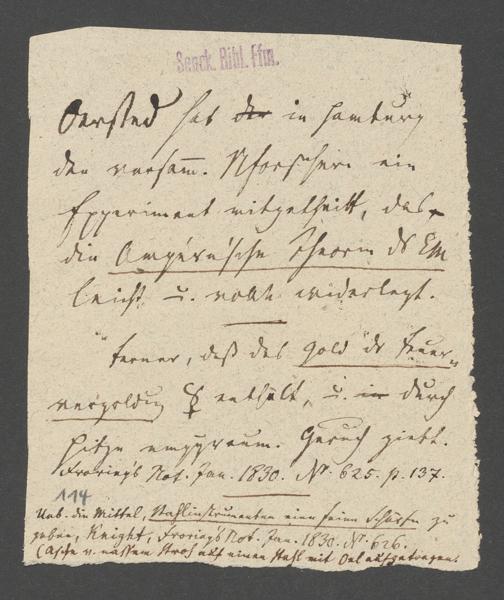 Senck. Bibl. Ffm.
Oersted hat der in Hamburg
den versamm. Nforschern ein
Experiment mitgetheilt, das
die Ampére'sche Theorie ds EM
leicht u. widerlegt.
Ferner, daß das Gold ds Feuer-
vergoldung ☿ enthält, u. in durch
Hitze empyreum. Geruch giebt.
Froriep's Not. Jan. 1830. N°. 625. p. 137.
114
Ueb. die Mittel, Stahlinstrumenten eine feine Schärfe zu
geben, Knight, Froriep's Not. Jan. 1830. N°. 626.
(Asche v. Stroh auf einen Stahl mit Oel aufgetragen.